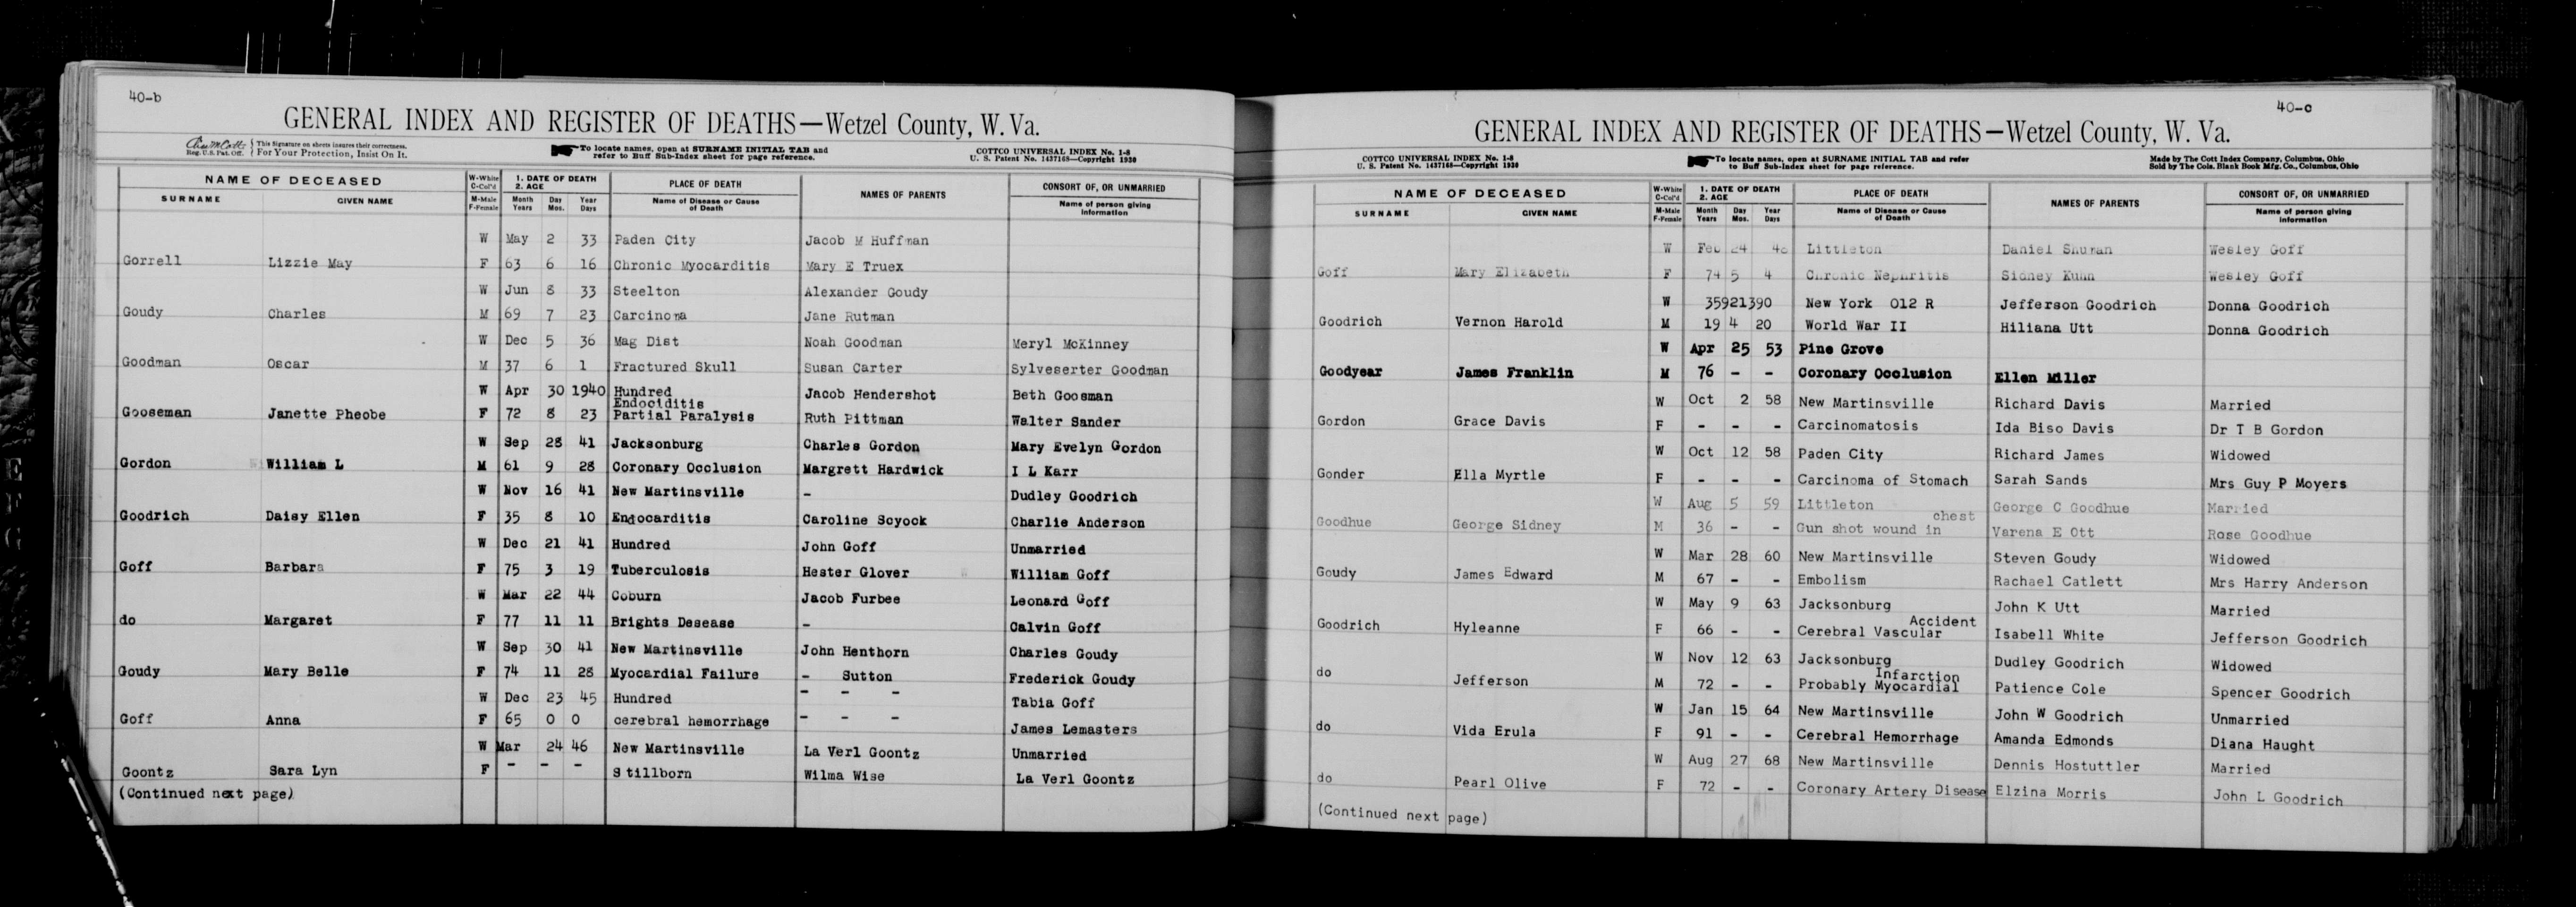 40-b
GENERAL INDEX AND REGISTER OF DEATHS—Wetzel County, W. Va.
Reg. U.S. Pat. Off. { This Signature on sheets insures their correctness. For Your Protection, Insist On It.
To locate names, open at SURNAME INITIAL TAB and refer to Buff Sub-Index sheet for page reference.
COTTCO UNIVERSAL INDEX No. 1-8
U. S. Patent No. 1437168—Copyright 1930
NAME OF DECEASED W-White C-Col'd 1. DATE OF DEATH 2. AGE PLACE OF DEATH NAMES OF PARENTS CONSORT OF, OR UNMARRIED
SURNAME GIVEN NAME M-Male F-Female Month Years Day Mos. Year Days Name of Disease or Cause of Death Name of person giving information
W May 2 33 Paden City Jacob M Huffman
Gorrell Lizzie May F 63 6 16 Chronic Myocarditis Mary E Truex
W Jun 8 33 Steelton Alexander Goudy
Goudy Charles M 69 7 23 Carcinoma Jane Rutman
W Dec 5 36 Mag Dist Noah Goodman Meryl McKinney
Goodman Oscar M 37 6 1 Fractured Skull Susan Carter Sylveserter Goodman
W Apr 30 1940 Hundred Jacob Hendershot Beth Goosman
Endociditis
Gooseman Janette Pheobe F 72 8 23 Partial Paralysis Ruth Pittman Walter Sander
W Sep 28 41 Jacksonburg Charles Gordon Mary Evelyn Gordon
Gordon William L M 61 9 28 Coronary Occlusion Margrett Hardwick I L Karr
W Nov 16 41 New Martinsville - Dudley Goodrich
Goodrich Daisy Ellen F 35 8 10 Endocarditis Caroline Scyock Charlie Anderson
W Dec 21 41 Hundred John Goff Unmarried
Goff Barbara F 75 3 19 Tuberculosis Hester Glover William Goff
W Mar 22 44 Coburn Jacob Furbee Leonard Goff
do Margaret F 77 11 11 Brights Desease - Calvin Goff
W Sep 30 41 New Martinsville John Henthorn Charles Goudy
Goudy Mary Belle F 74 11 28 Myocardial Failure - Sutton Frederick Goudy
W Dec 23 45 Hundred - - - Tabia Goff
Goff Anna F 65 0 0 cerebral hemorrhage - - - James Lemasters
W Mar 24 46 New Martinsville La Verl Goontz Unmarried
Goontz Sara Lyn F - - - Stillborn Wilma Wise La Verl Goontz
(Continued next page)
40-c
GENERAL INDEX AND REGISTER OF DEATHS—Wetzel County, W. Va.
COTTCO UNIVERSAL INDEX No. 1-8
U. S. Patent No. 1437168—Copyright 1930
To locate names, open at SURNAME INITIAL TAB and refer to Buff Sub-Index sheet for page reference.
Made by The Cott Index Company, Columbus, Ohio
Sold by The Cols. Blank Book Mfg. Co., Columbus, Ohio
NAME OF DECEASED W-White C-Col'd 1. DATE OF DEATH 2. AGE PLACE OF DEATH NAMES OF PARENTS CONSORT OF, OR UNMARRIED
SURNAME GIVEN NAME M-Male F-Female Month Years Day Mos. Year Days Name of Disease or Cause of Death Name of person giving information
W Feb 24 48 Littleton Daniel Shuman Wesley Goff
Goff Mary Elizabeth F 74 5 4 Chronic Nephritis Sidney Kuhn Wesley Goff
W 35921390 New York 012 R Jefferson Goodrich Donna Goodrich
Goodrich Vernon Harold M 19 4 20 World War II Hiliana Utt Donna Goodrich
W Apr 25 53 Pine Grove
Goodyear James Franklin M 76 - - Coronary Occlusion Ellen Miller
W Oct 2 58 New Martinsville Richard Davis Married
Gordon Grace Davis F - - - Carcinomatosis Ida Biso Davis Dr T B Gordon
W Oct 12 58 Paden City Richard James Widowed
Gonder Ella Myrtle F - - - Carcinoma of Stomach Sarah Sands Mrs Guy P Moyers
W Aug 5 59 Littleton George C Goodhue Married
chest
Goodhue George Sidney M 36 - - Gun shot wound in Varena E Ott Rose Goodhue
W Mar 28 60 New Martinsville Steven Goudy Widowed
Goudy James Edward M 67 - - Embolism Rachael Catlett Mrs Harry Anderson
W May 9 63 Jacksonburg John K Utt Married
Accident
Goodrich Hyleanne F 66 - - Cerebral Vascular Isabell White Jefferson Goodrich
W Nov 12 63 Jacksonburg Dudley Goodrich Widowed
Infarction
do Jefferson M 72 - - Probably Myocardial Patience Cole Spencer Goodrich
W Jan 15 64 New Martinsville John W Goodrich Unmarried
do Vida Erula F 91 - - Cerebral Hemorrhage Amanda Edmonds Diana Haught
W Aug 27 68 New Martinsville Dennis Hostuttler Married
do Pearl Olive F 72 - - Coronary Artery Disease Elzina Morris John L Goodrich
(Continued next page)